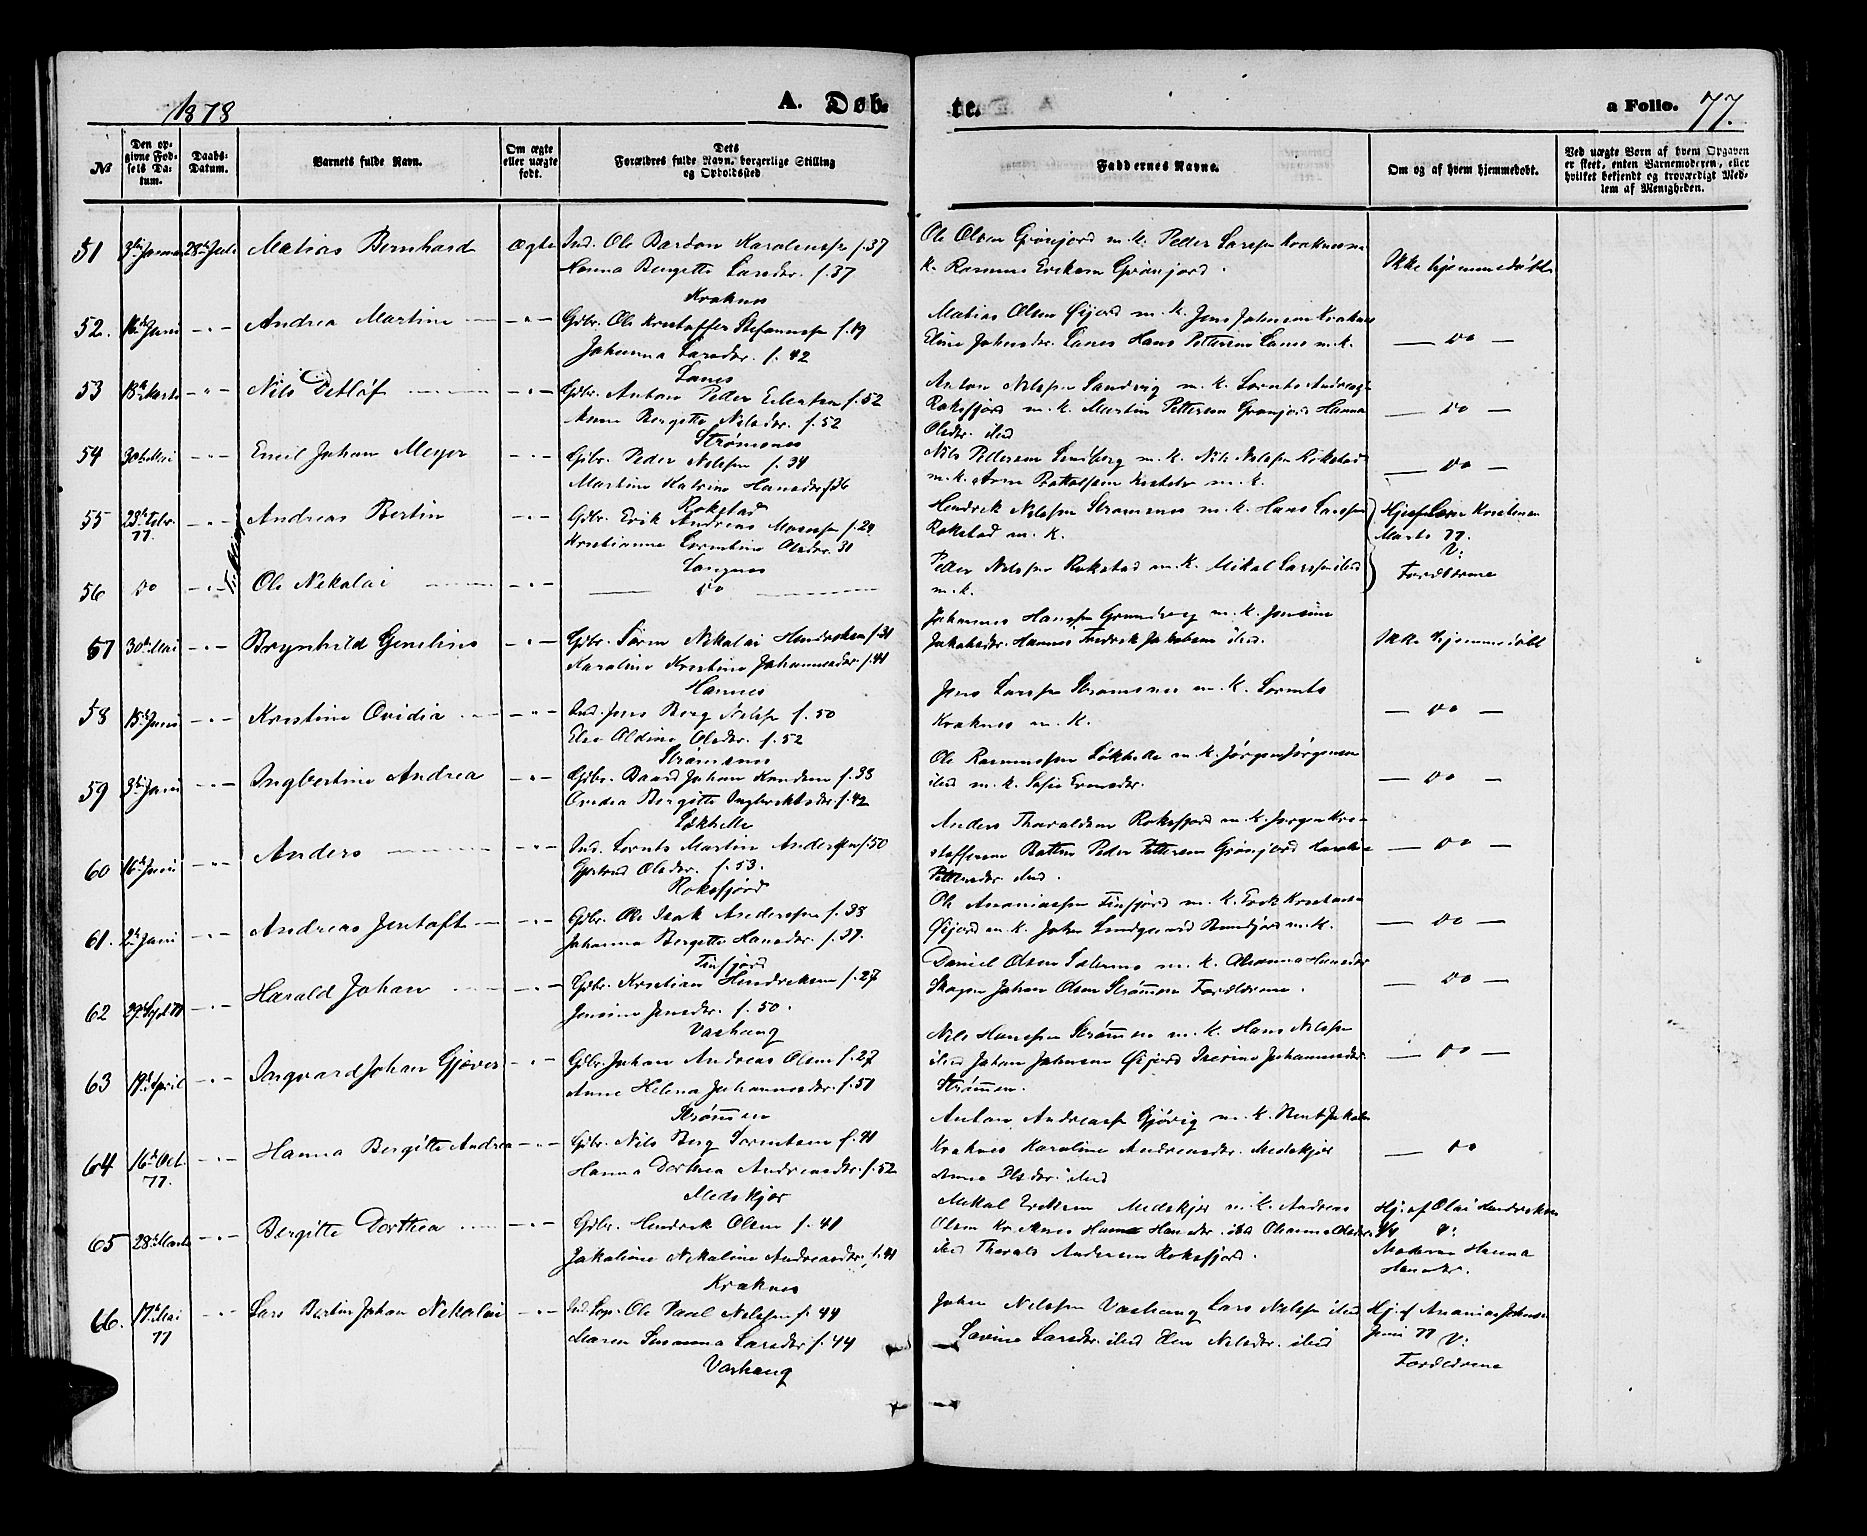 1878
A. Døb-
te.
a Folio. 77.
№
Den op-
givne Fød-
sels Da-
tum.
Daabs-
Datum.
Barnets fulde Navn.
Om ægte
eller uægte
født.
Dets
Forældres fulde Navn, borgerlige Stilling
og Opholdssted
Faddernes Navne.
Om og af hvem hjemmedøbt.
Ved uægte Born af hvem Opgaven
er skeet, enten Barnemoderen, eller
hvilket bekjendt og troværdigt Med-
lem af Menigheden.
51
28de Juli
Matias Bernhard
Ægte
Ind. Ole Bardon Karolensen f. 37
Hanna Bergitte Larsdtr. f. 37
Kraknes
Ole Olsen Grønjord m. K. Petter Larssen Kraknes m.
K. Rasmus Eriksen Grønjord.
Ikke hjemmedøbt
52.
Juni
Andrea Martine
Gdbr. Ole Kristoffer Stefanussen f. 49
Johanna Larsdtr. f. 42
Lanes
Matias Olsen Øijord m. K. Jens Johnsen Kraknes
Eline Johnsdtr. Lanes Hans Pettersen Lanes m. K.
— do —
53
Marts
Nils Detløf
Gdbr. Anton Peder Eilertsen f. 52
Anne Bergitte Nilsdtr. f. 52
Strømsnes
Anton Nilssen Sandvig m. K. Lornts Andreas
Roksfjord m. K. Martin Pettersen Grønjord Hanna
Olsdtr. ibid
— do —
54
30de Mai
Emil Johan Meyer
Gdbr. Peder Nilssen f. 34
Martine Katrine Hansdtr f. 36
Rokstad
Nils Pettersen Lindberg m. K. Nils Nilssen Rokstad
m. K. Arne
m. K.
— do —
55
28de Febr.
77.
Andreas Bertin
Tvillinger
Gdbr. Erik Andreas Monssen f. 29
Kristianna Lorntine Olsdtr. 31
Langnes
Hendrik Nilssen Strømsnes m. K. Hans Larssen
Rokstad m. K.
Hj. af Lars Kristensen
Marts 77.
V:
Forældrene
56
do
Ole Nikolai
— do —
Petter Nilssen Rokstad m. K. Mikal Larssen ibid
m. K.
57
30de Mai
Brynhild Geneline
Gdbr. Søren Nikolai Hendriksen f. 31
Karoline Kristine Johannesdtr. f. 41
Hannes
Johannes Hanssen Grundvaag m. K. Jensine
Jakobsdtr. Hannes Fredrik Jakobsen ibid.
Ikke hjemmedøbt
58
15de Juni
Kristine Ovidia
Ind. Jens Berg Nilssen f. 50
Elen Aldine Olsdtr. f. 52
Strømsnes
Jens Larssen Strømsnes m. K. Lornts
Kraknes m. K.
— do —
59
3die Juni
Ingbertine Andrea
Gdbr. Baard Johan Knudsen f. 33
Ovidia Bergitte Ingbrektsdtr f. 42
Løkhelle
Ole Rasmussen Løkhelle m. K. Jørgen Jørgensen
ibid m. K. Sofie
— do —
60
16de Juni
Anders
Ind. Lornts Martin Anderssen f. 50
Gjertrud Olsdtr. f. 53.
Roksfjord
Anders Thoraldsen Roksfjord m. K. Jørgen Kri-
stoffersen Botten Peder Pettersen Grønjord
Pettersdtr ibid.
— do —
61.
2den Juni
Andreas Jentoft
Gdbr. Ole Isak Anderssen f. 33
Johanna Bergitte Hansdtr. f. 37.
Finfjord
Ole Ananiassen Finfjord m. K. Erik Kristensen
Øijord m. K. Johan Lindgaard m. K.
— do —
62
29de Sept 77
Harald Johan
Gdbr. Kristian Hendriksen f. 27
Jensine Jensdtr. f. 50.
Vashaug
Daniel Olsen Solernes m. K. Hansdtr
Skogen Johan Olsen Strømmen Forældrene.
— do —
63
April
Ingvard Johan Gjæver
Gdbr. Johan Andreas Olsen f. 27
Anne Helena Johannesdtr. f. 51
Strømmen
Nils Hanssen Strømmen m. K. Hans Nilssen
ibid Johan Johnsen Øijord Johannesdtr.
Strømmen.
— do —
64
16de Oct.
77.
Hanna Bergitte Andrea
Gdbr. Nils Berg Lorntsen f. 41
Hanna Dorthea Andreasdtr. f. 52
Medskjør
Anton Andreassen Gjøvig m. K. Jakobsen
Kraknes Karoline Andreasdtr. Medskjør
Anna Olsdtr. ibid
— do
65
28de Marts
Bergitte Dorthea
Gdbr. Hendrik Olsen f. 41
Jakobine Nikoline Andreasdtr. f. 41
Kraknes
Mikal Eriksen Medskjør m. K. Andreas
Olsen Kraknes Hanna Hansdtr. ibid Olsdtr.
ibid Thorald Andersen Roksfjord.
Hj. af Olai Hendriksen
V:
Moderen Hanna
Hansdtr.
66.
17de Mai
77
Lars Bertin Johan Nikolai
Ind. Ole Paul Nilssen f. 44
Maren Susanna Larsdtr f. 44
Vashaug
Johan Nilssen Vashaug Lars Nilssen ibid
Larsdtr. ibid Elen Nilsdtr. ibid
Hj. af Ananias Johnsen
Juni 77 V:
Forældrene